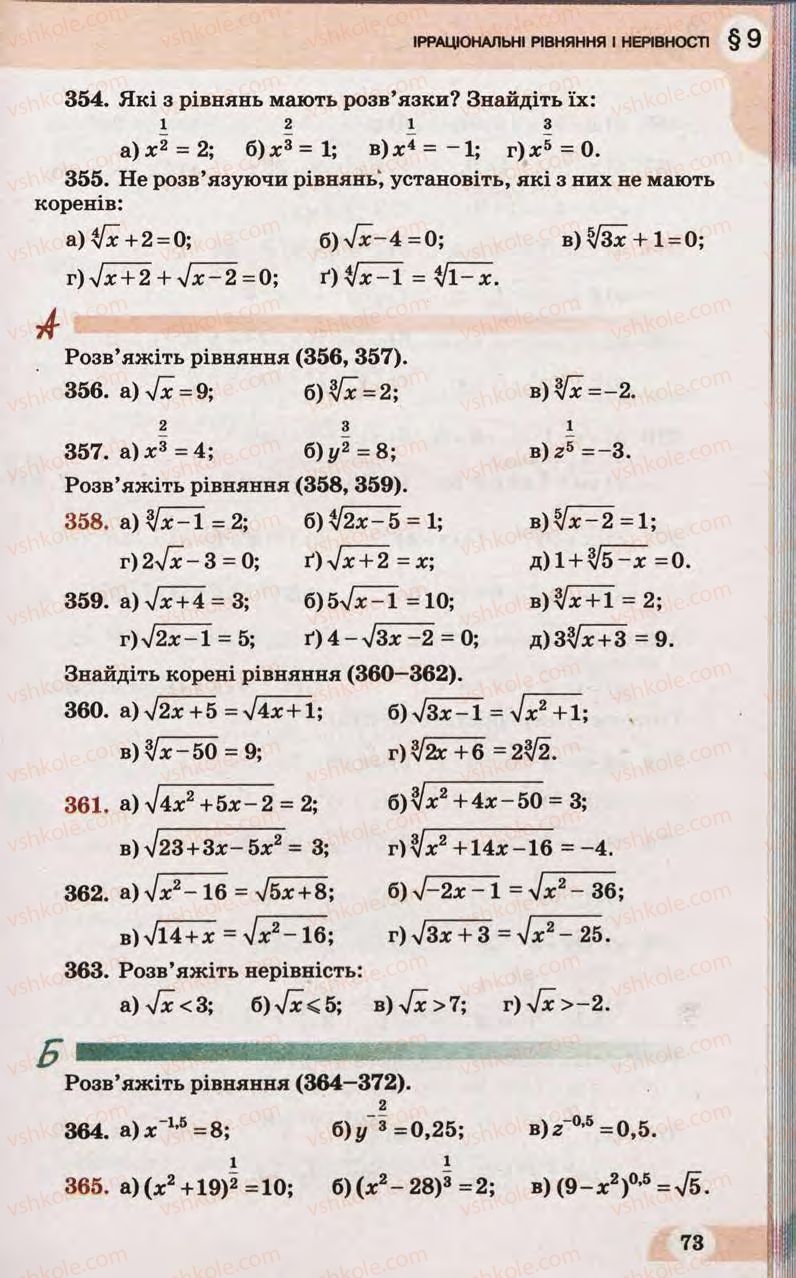 ІРРАЦІОНАЛЬНІ РІВНЯННЯ І НЕРІВНОСТІ § 9
354. Які з рівнянь мають розв’язки? Знайдіть їх:
а) x^(1/2) = 2; б) x^(2/3) = 1; в) x^(1/4) = −1; г) x^(3/5) = 0.
355. Не розв’язуючи рівнянь, установіть, які з них не мають
коренів:
а) ∜x + 2 = 0; б) √x − 4 = 0; в) ⁵√(3x) + 1 = 0;
г) √(x+2) + √(x−2) = 0; ґ) ∜(x−1) = ∜(1−x).
А
Розв’яжіть рівняння (356, 357).
356. а) √x = 9; б) ∛x = 2; в) ∛x = −2.
357. а) x^(2/3) = 4; б) y^(3/2) = 8; в) z^(1/5) = −3.
Розв’яжіть рівняння (358, 359).
358. а) ∛(x−1) = 2; б) ∜(2x−5) = 1; в) ⁵√(x−2) = 1;
г) 2√x − 3 = 0; ґ) √(x+2) = x; д) 1 + ∛(5−x) = 0.
359. а) √(x+4) = 3; б) 5√(x−1) = 10; в) ∛(x+1) = 2;
г) √(2x−1) = 5; ґ) 4 − √(3x−2) = 0; д) 3∛(x+3) = 9.
Знайдіть корені рівняння (360–362).
360. а) √(2x+5) = √(4x+1); б) √(3x−1) = √(x²+1);
в) ∛(x−50) = 9; г) ∛(2x+6) = 2∛2.
361. а) √(4x²+5x−2) = 2; б) ∛(x²+4x−50) = 3;
в) √(23+3x−5x²) = 3; г) ∛(x²+14x−16) = −4.
362. а) √(x²−16) = √(5x+8); б) √(−2x−1) = √(x²−36);
в) √(14+x) = √(x²−16); г) √(3x+3) = √(x²−25).
363. Розв’яжіть нерівність:
а) √x < 3; б) √x ⩽ 5; в) √x > 7; г) √x > −2.
Б
Розв’яжіть рівняння (364–372).
364. а) x^(−1,5) = 8; б) y^(−2/3) = 0,25; в) z^(−0,5) = 0,5.
365. а) (x²+19)^(1/2) = 10; б) (x²−28)^(1/3) = 2; в) (9−x²)^(0,5) = √5.
73
vshkole.com